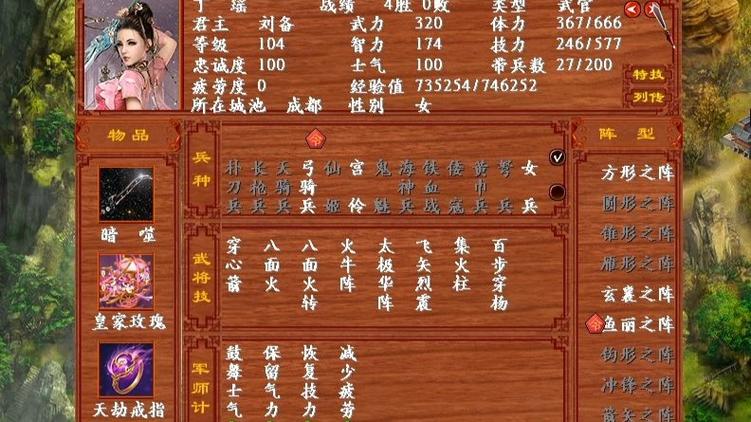 丁 瑶 战绩 4胜 0败 类型 武官
君主 刘备 武力 320 体力 367/666
等级 104 智力 174 技力 246/577
忠诚度 100 士气 100 带兵数 27/200
疲劳度 0 经验值 735254/746252
所在城池 成都 性别 女
特技
列传
物品
暗噬
皇家玫瑰
天劫戒指
兵种
朴刀兵
长枪兵
天骑兵
弓骑兵
仙姬
宫伶
鬼魅
海神兵
候血战
倭寇
黄巾兵
弩兵
女兵
武将技
穿心箭
八面火
八面火转
火牛阵
太极华阵
飞矢烈震
集火柱
百步穿杨
军师计
鼓舞士气
保留气力
恢复技力
减少疲劳
阵型
方形之阵
圆形之阵
锥形之阵
雁形之阵
玄襄之阵
令
鱼丽之阵
钩形之阵
冲锋之阵
箭矢之阵